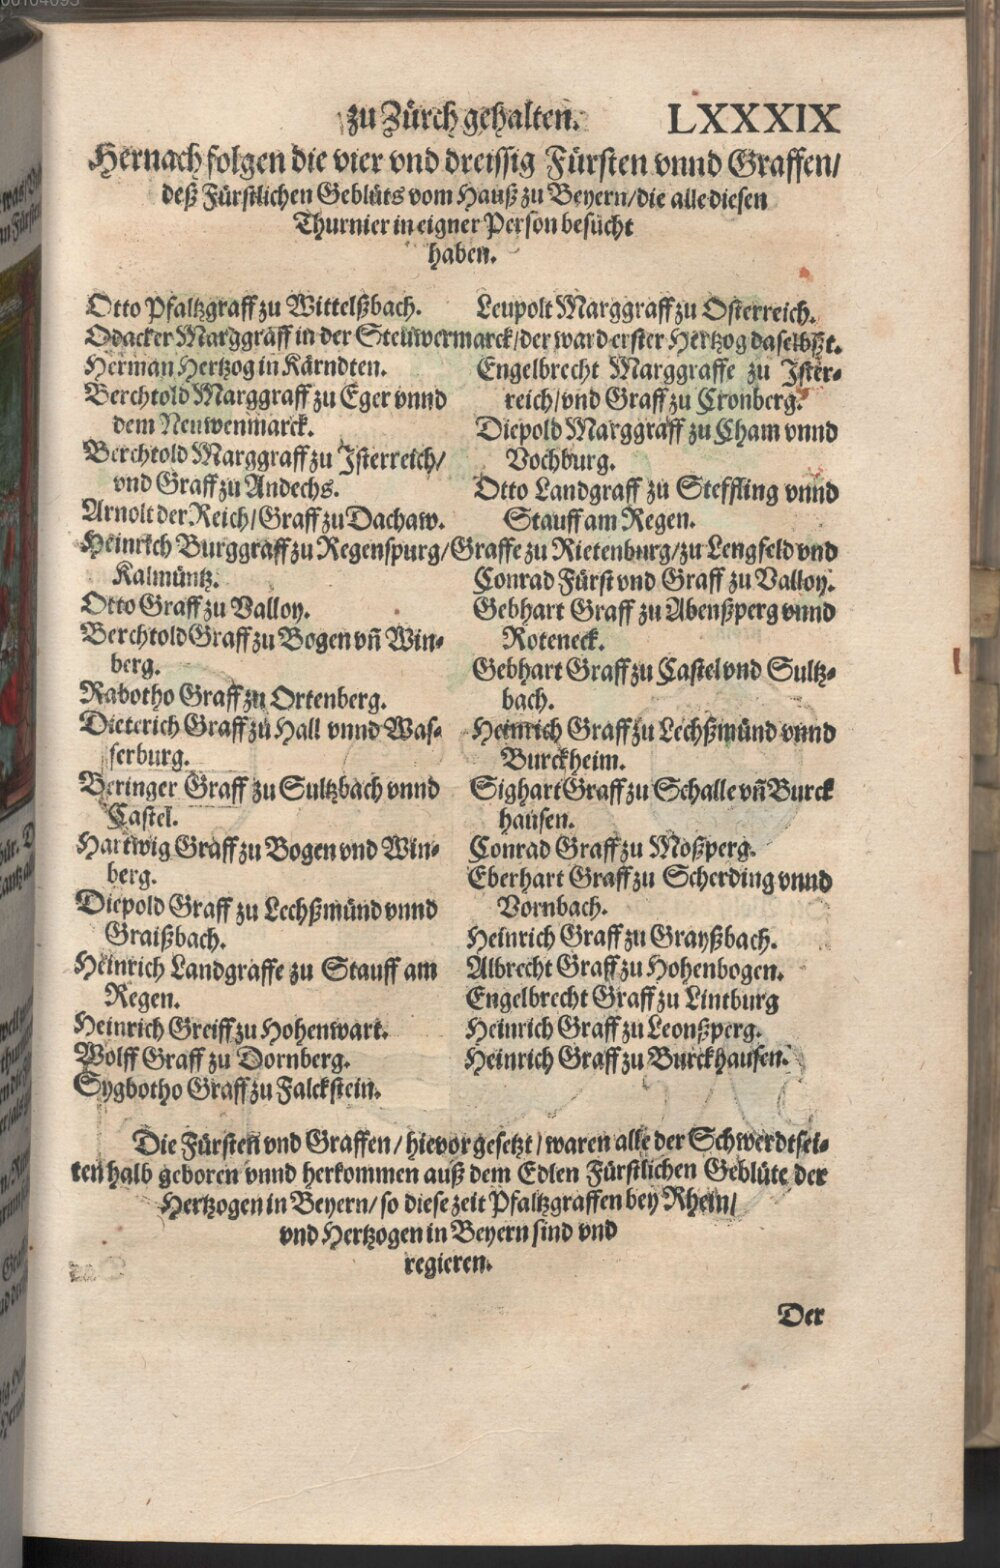 zu Zürch gehalten. LXXXIX
Hernach folgen die vier vnd dreissig Fürsten vnnd Graffen/
deß Fürstlichen Geblüts vom Hauß zu Beyern/die alle diesen
Thurnier in eigner Person besücht
haben.
Otto Pfaltzgraff zu Wittelßbach.
Leupolt Marggraff zu Osterreich.
Odacker Marggraff in der Steuwermarck/der ward erster Hertzog daselbßt.
Herman Hertzog in Kärndten.
Berchtold Marggraff zu Eger vnnd
dem Neuwenmarck.
Berchtold Marggraff zu Jsterreich/
vnd Graff zu Andechs.
Arnolt der Reich/Graff zu Dachaw.
Engelbrecht Marggraffe zu Jster-
reich/vnd Graff zu Cronberg.
Diepold Marggraff zu Cham vnnd
Vochburg.
Otto Landgraff zu Steffling vnnd
Stauff am Regen.
Heinrich Burggraff zu Regenspurg/Graffe zu Rietenburg/zu Lengfeld vnd
Kalmüntz.
Otto Graff zu Valloy.
Berchtold Graff zu Bogen vñ Win-
berg.
Rabotho Graff zu Ortenberg.
Dieterich Graff zu Hall vnnd Was-
serburg.
Beringer Graff zu Sultzbach vnnd
Castel.
Hartwig Graff zu Bogen vnd Win-
berg.
Diepold Graff zu Lechßmünd vnnd
Graißbach.
Heinrich Landgraffe zu Stauff am
Regen.
Heinrich Greiff zu Hohenwart.
Wolff Graff zu Dornberg.
Sygbotho Graff zu Falckstein.
Conrad Fürst vnd Graff zu Valloy.
Gebhart Graff zu Abenßperg vnnd
Roteneck.
Gebhart Graff zu Castel vnd Sultz-
bach.
Heinrich Graff zu Lechßmünd vnnd
Burckheim.
Sighart Graff zu Schalle vñ Burck
hausen.
Conrad Graff zu Moßperg.
Eberhart Graff zu Scherding vnnd
Vornbach.
Heinrich Graff zu Grayßbach.
Albrecht Graff zu Hohenbogen.
Engelbrecht Graff zu Lintburg
Heinrich Graff zu Leonßperg.
Heinrich Graff zu Burckhausen.
Die Fürsten vnd Graffen/hievor gesetzt/waren alle der Schwerdtsei-
ten halb geboren vnnd herkommen auß dem Edlen Fürstlichen Geblüte der
Hertzogen in Beyern/so diese zeit Pfaltzgraffen bey Rhein/
vnd Hertzogen in Beyern sind vnd
regieren.
Der